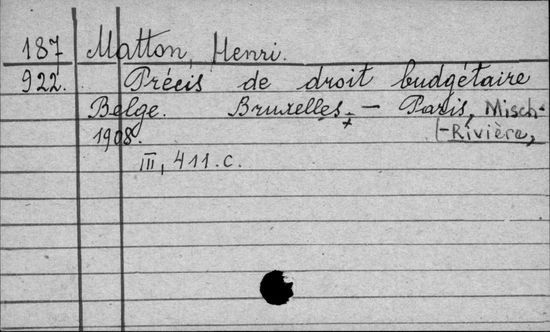 187 Matton, Henri.
922. Précis de droit budgétaire
Belge. Bruxelles, - Paris, Misch-
1908. -Rivière,
III, 411.c.